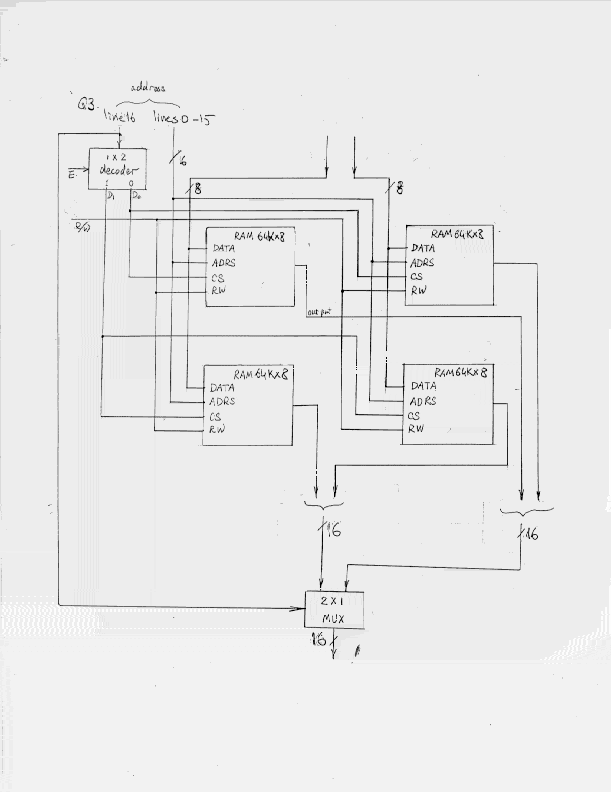 address
Q3.
line16 lines 0-15
1 X 2
decoder
1 0
E
D1 D0
6
8
8
R/W
RAM 64KX8
DATA
ADRS
CS
RW
RAM 64KX8
DATA
ADRS
CS
RW
output
RAM 64KX8
DATA
ADRS
CS
RW
RAM 64KX8
DATA
ADRS
CS
RW
16
16
2 X 1
MUX
16